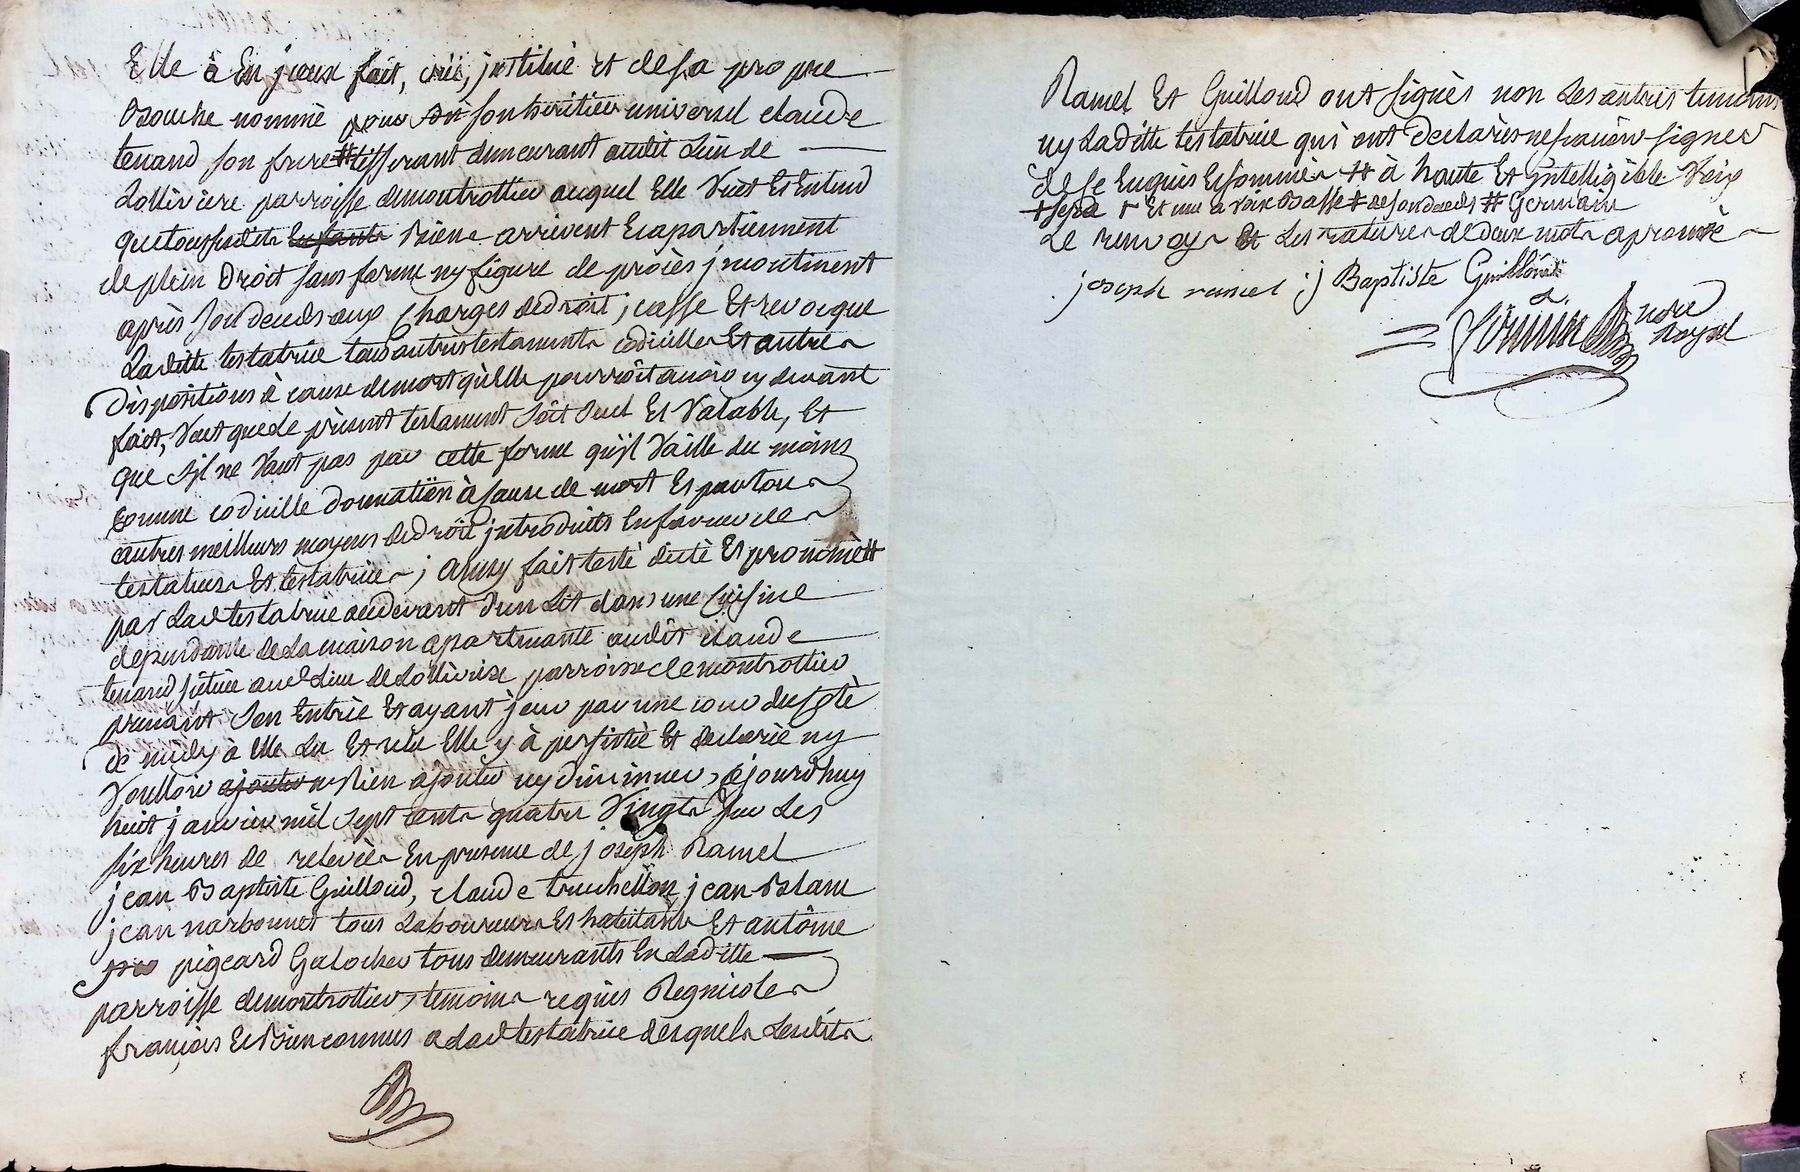 Elle à En jceux fait, créé, jnstitué et de sa propre
Bouche nommé pour son hoeritier universel claude
tenand son frere # tisserant demeurant audit Lieu de
Lolliviere parroisse demontrottier auquel Elle Veut Et Entend
que tous sesdits biens arrivent Et apartiennent
de plein Droit sans forme ny figure de procès jncontinent
après son deceds aux Charges de droit, casse Et revocque
Laditte testatrice tous autres testaments codicilles Et autres
Dispositions à cause demort qu'elle pourroit avoir cy devant
fait, Veut que Le present testament soit seul Et Valable, Et
que s'jl ne Vaut pas par cette forme qu'jl Vaille du moins
comme codicille donnation à cause de mort Et par tous
autres meilleurs moyens de droit jntroduits En faveur des
testateurs Et testatrices, ainsy fait testé dicté Et prononcé #
par Lad testatrice audevant d'un Lit dans une Cuisine
dependante de La maison apartenante audit claude
tenand scituée aud Lieu de Lolliviere parroisse demontrottier
prenant son Entrée Et ayant jour par une cour du coté
de midy à Elle Lu Et relu Elle y à persisté Et declaré ny
Voulloir ajouter Rien ajouter ny diminuer, ajourd'huy
huit janvier mil sept cents quatre Vingts sur Les
six heures de relevée En presence de joseph Ramel
jean Baptiste Guilloud, claude truchellon, jean Blanc
jean narbonnet tous Laboureurs Et habitants Et antoine
pigeard Galocher tous demeurants En Laditte
parroisse demontrottier, temoins requis Regnicoles
françois Et Bien connus a Lad testatrice desquels Lesdits
Ramel Et Guilloud ont signés non Les autres temoins
ny Laditte testatrice qui ont declarés ne sçavoir signer
de ce Enquis Et sommés # à haute Et jntelligible Voix
Et une a voix Basse # de son deceds # Germain
Le renvoy Et Les ratures de deux mots aprouvés
joseph ramel j Baptiste Guilloud
nore
Royal